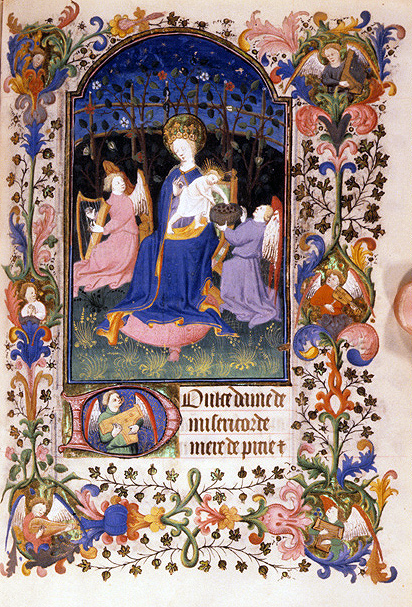 Doulce dame de
misericorde
mere de pitie ⁊